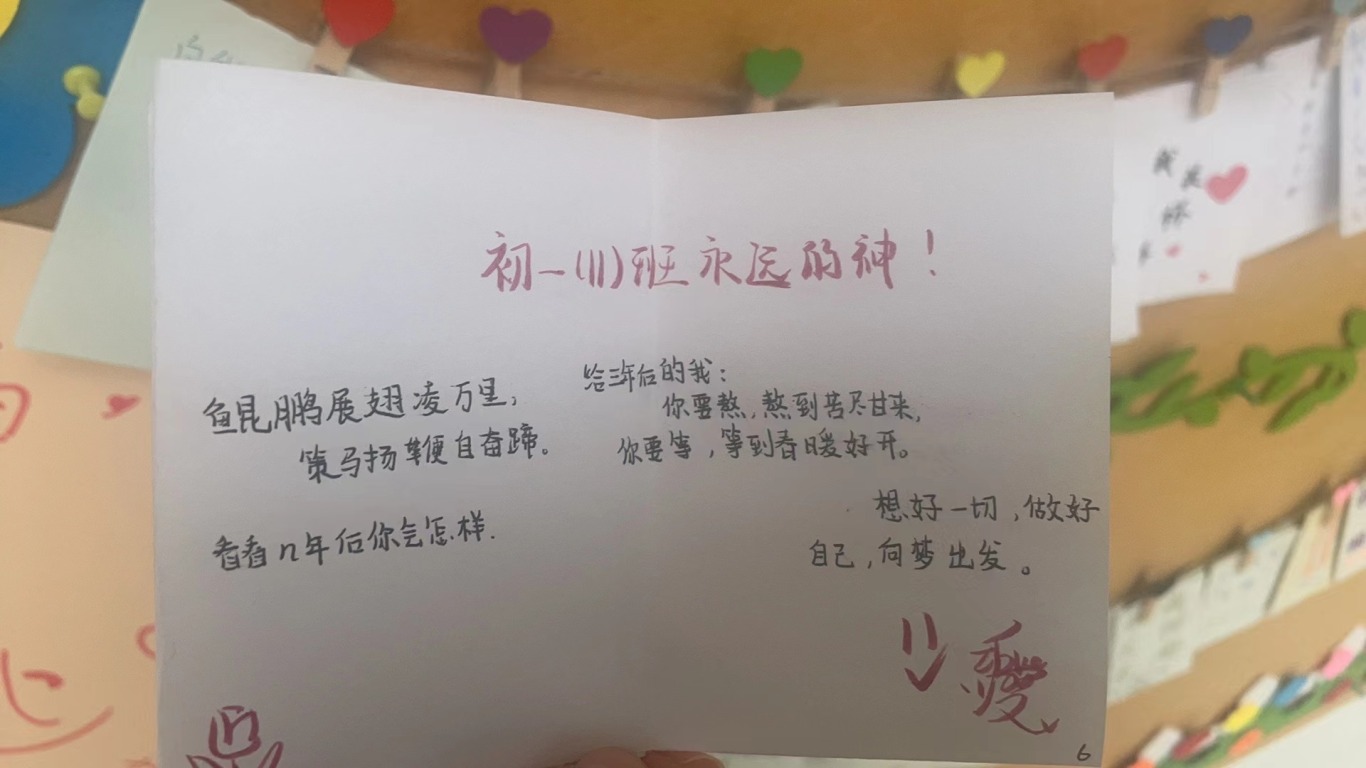 初一(11)班永远的神！
鱼昆鹏展翅凌万里，
策马扬鞭自奋蹄。
看看n年后你会怎样.
给三年后的我：
你要熬，熬到苦尽甘来，
你要等，等到春暖好开。
想好一切，做好
自己，向梦出发。
愛
6